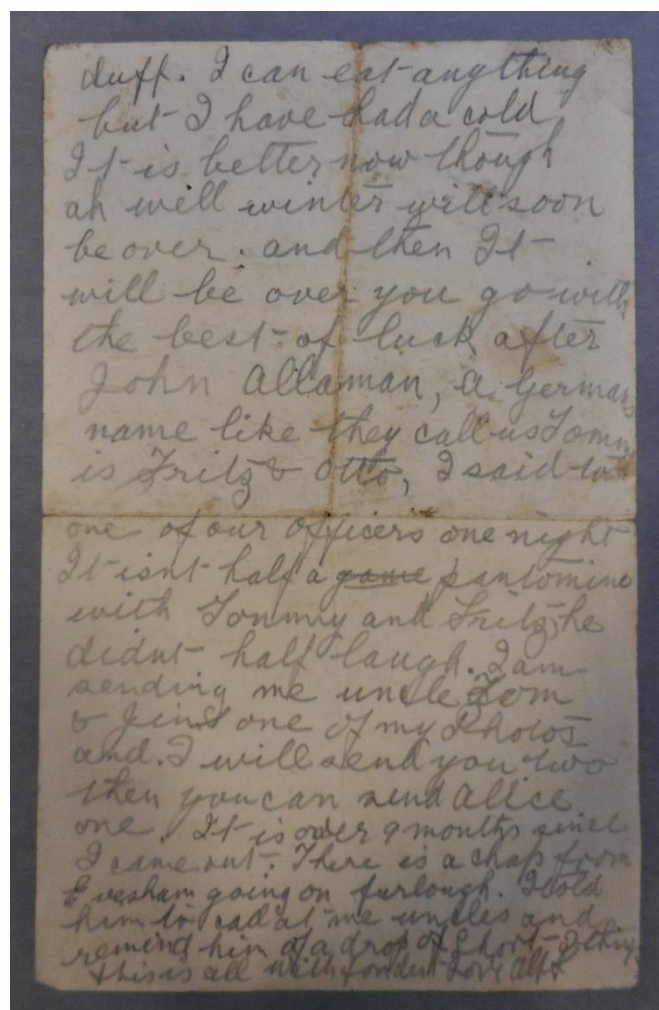 duff. I can eat anything
but I have had a cold
It is better now though
ah well winter will soon
be over. and then It
will be over you go with
the best of luck after
John Allaman, a German
name like they call us Tommy
is Fritz & Otto, I said to
one of our officers one night
It isnt half a game pantomine
with Tommy and Fritz, he
didnt half laugh. I am
sending me uncle Tom
& one of my Photos
and. I will send you two
then you can send Alice
one. It is over 9 months since
I came out. There is a chap from
Evesham going on furlough. I told
him to call at me uncles and
remind him of a drop of I think
this is all with fondest Love Alf